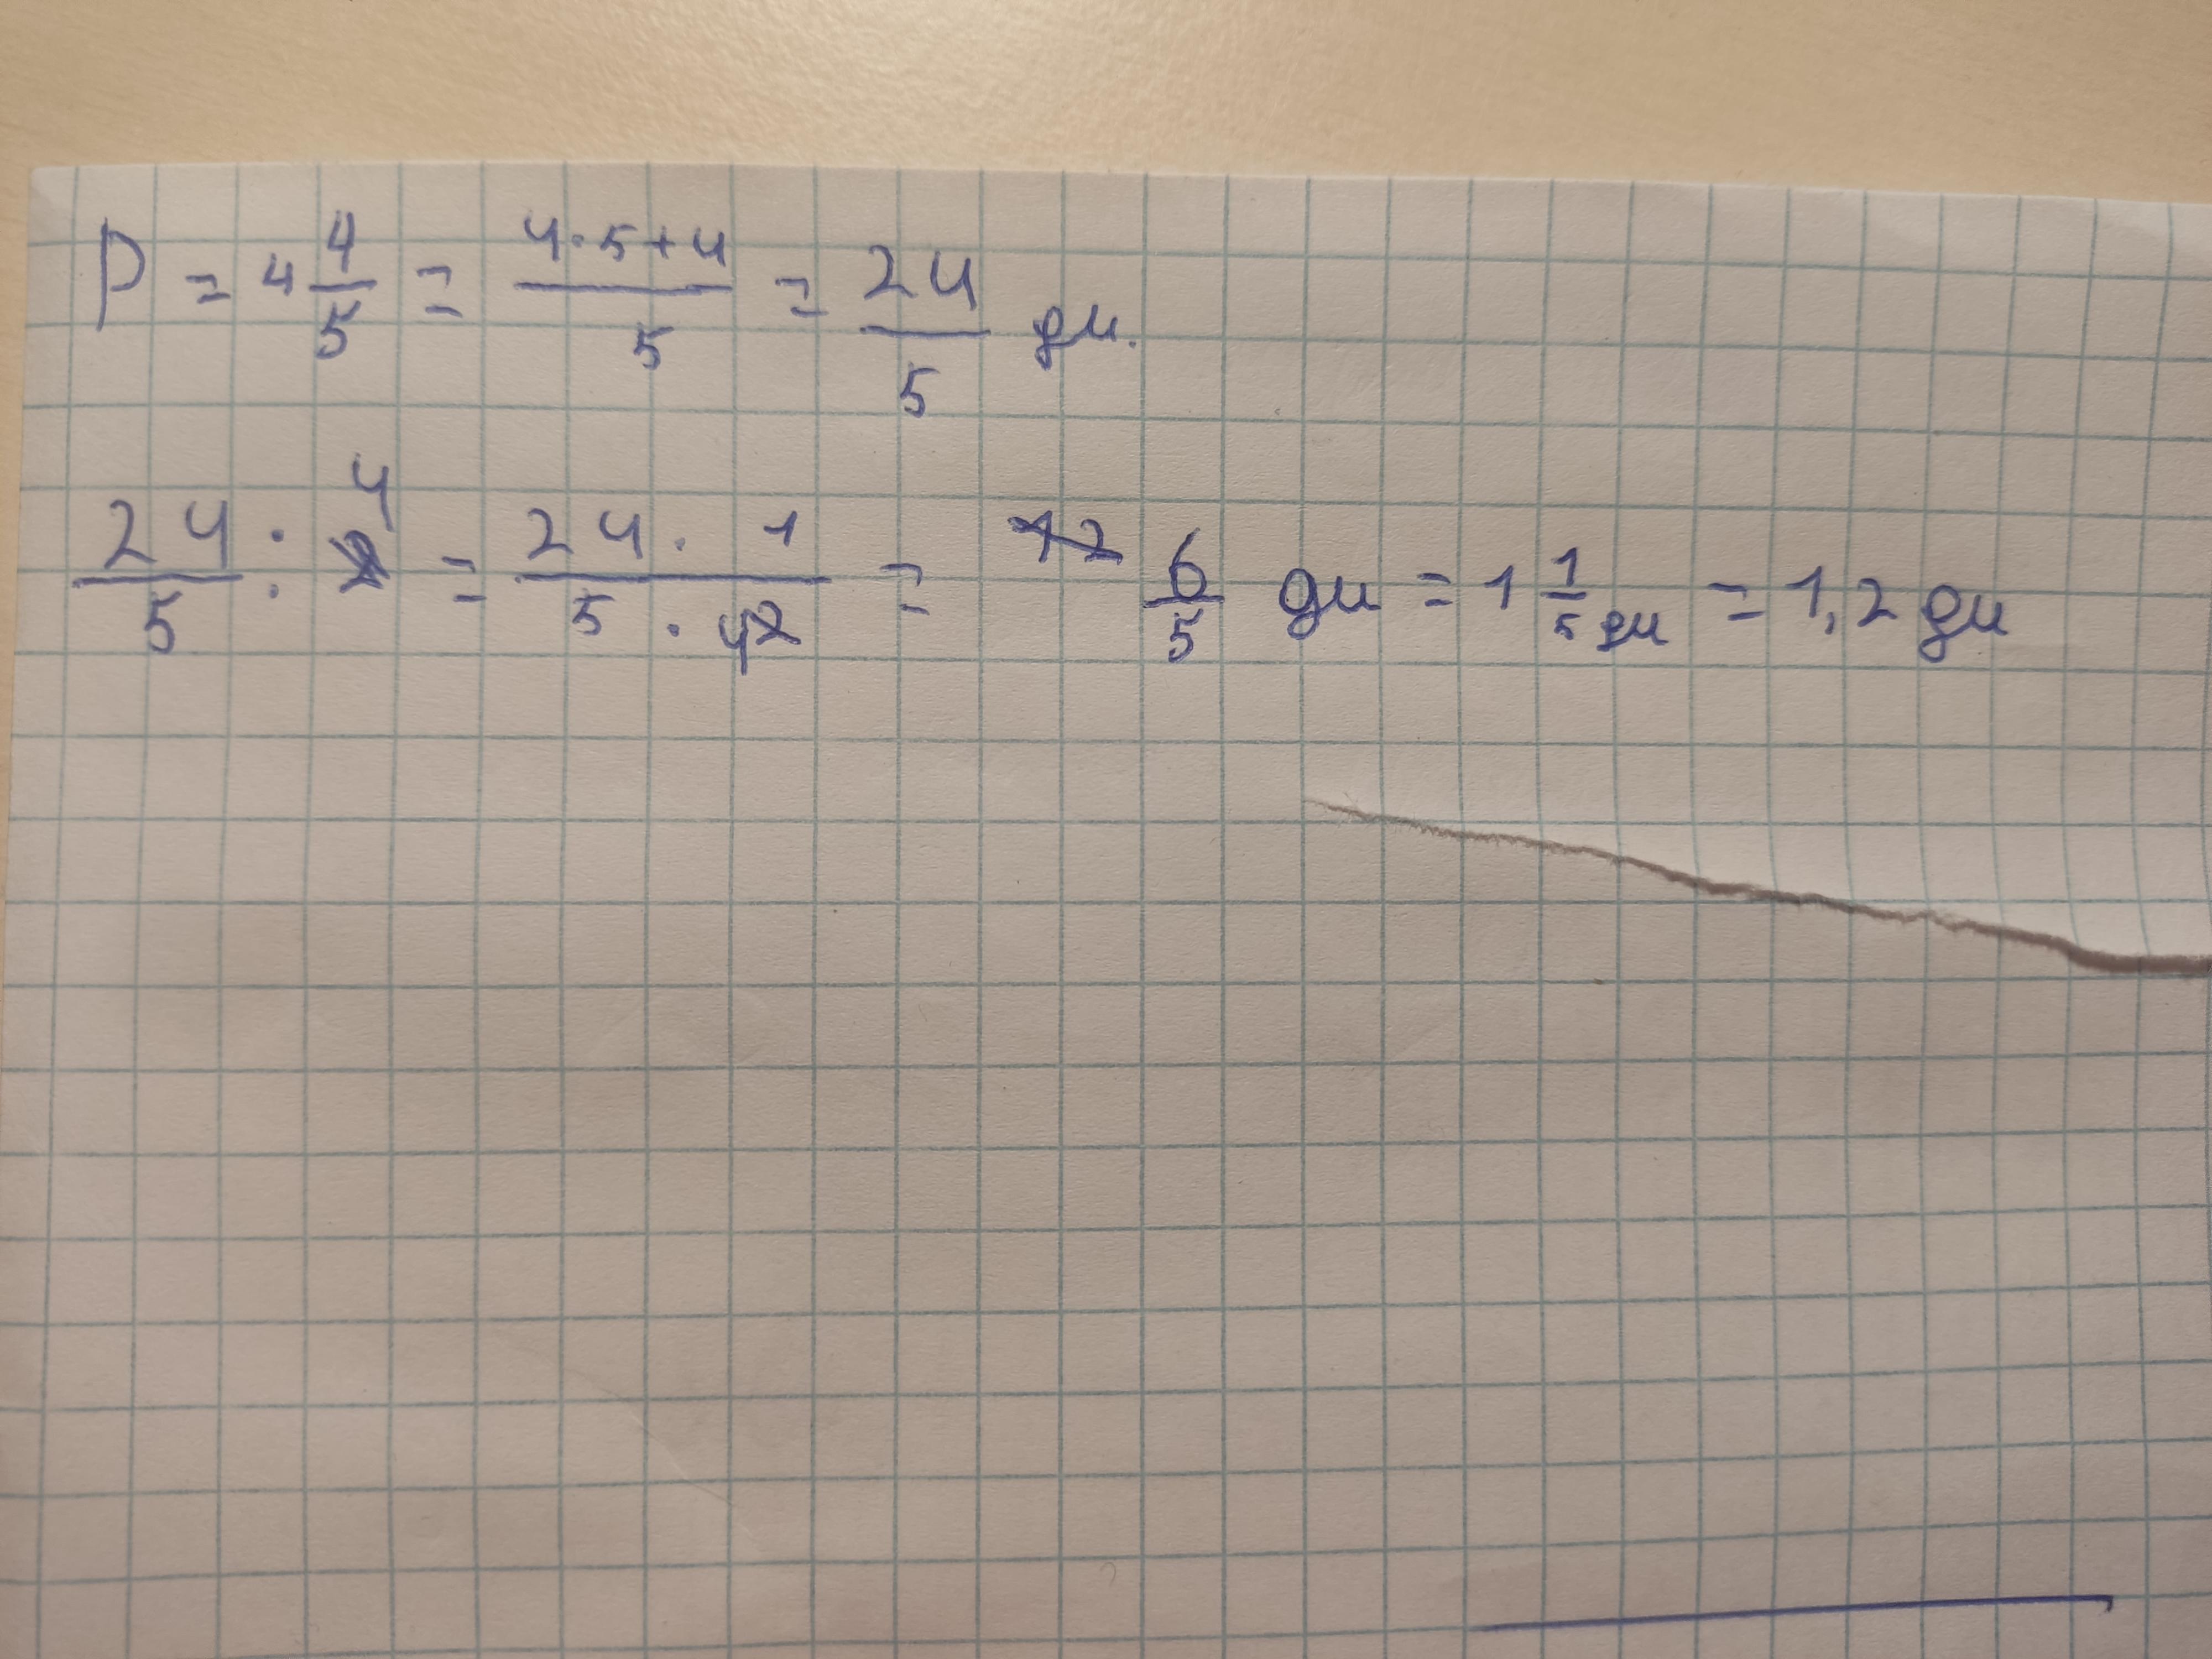 P = 4 4/5 = (4·5+4)/5 = 24/5 дм.
24/5 : 4 = (24 · 1)/(5 · 4) = 6/5 дм = 1 1/5 дм = 1,2 дм